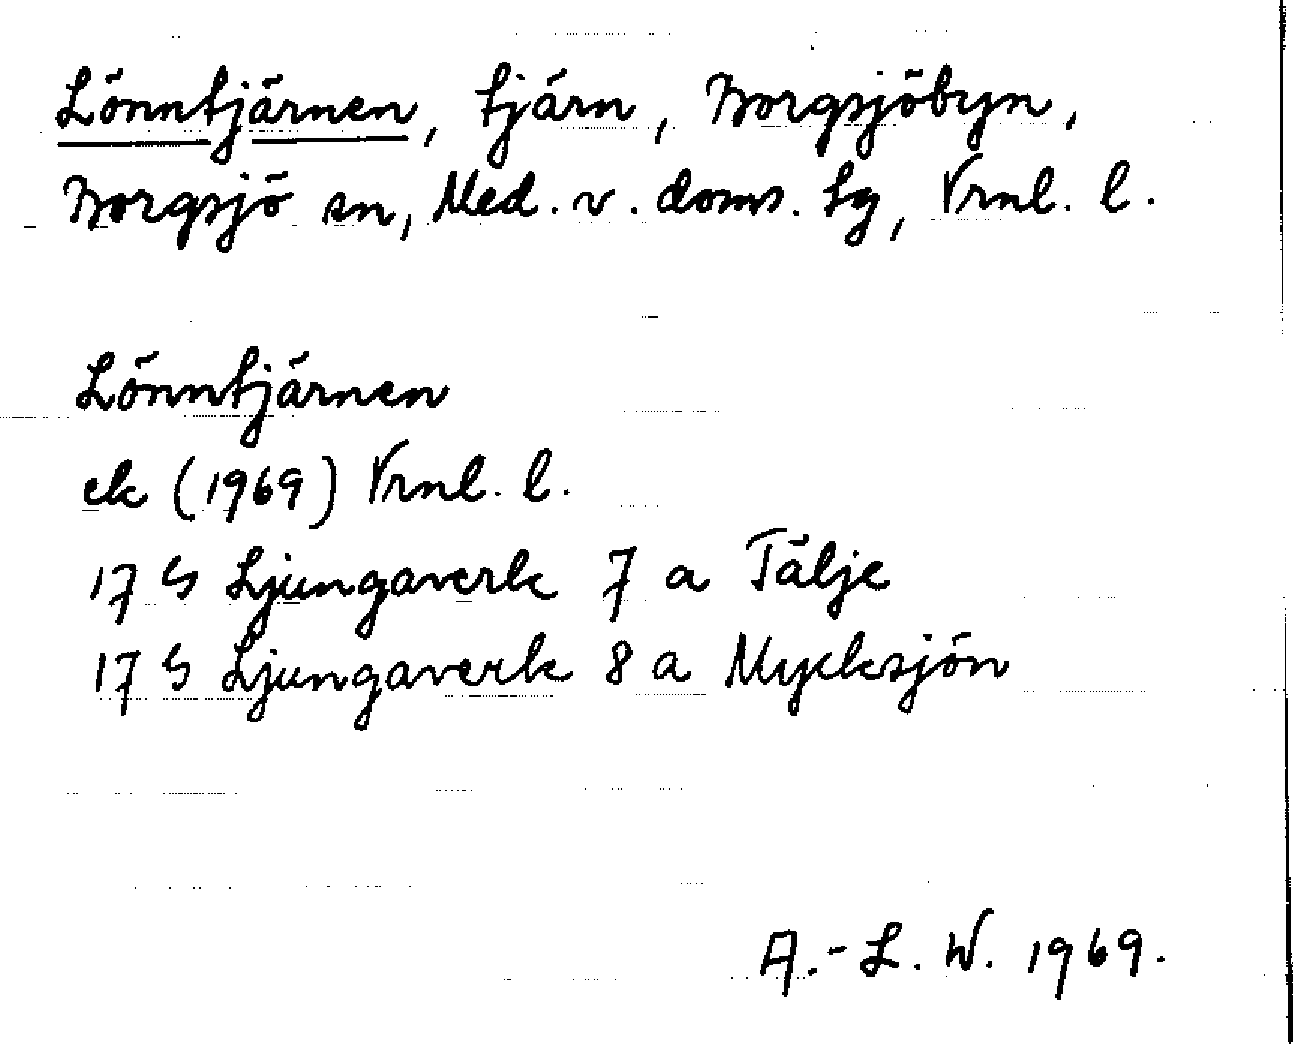 Lönntjärnen, tjärn, Borgsjöbyn,
Borgsjö sn, Med. v. doms. tg, Vrnl. l.
Lönntjärnen
ek (1969) Vrnl. l.
17 G Ljungaverk 7 a Tälje
17 G Ljungaverk 8 a Mycksjön
A.-L. W. 1969.